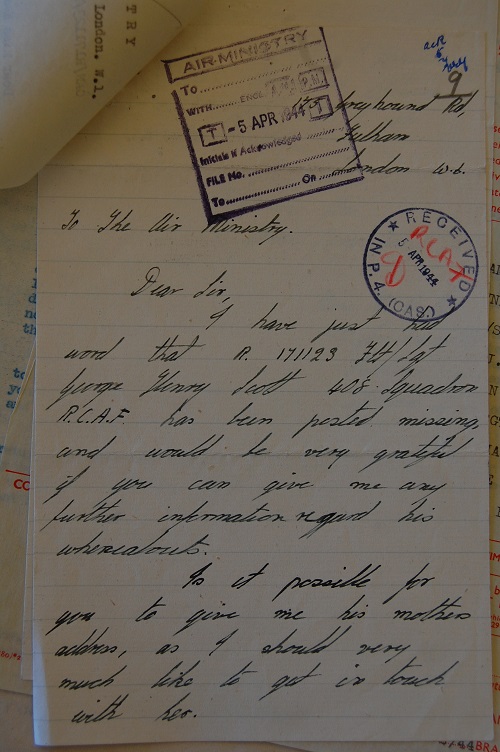 TRY
London. W.1.
AIR-MINISTRY
To
WITH
ENCL
T - 5 APR 1944 T
Initials if Acknowledged
FILE No.
To On
9
Greyhound Rd,
Fulham
London W.6.
RECEIVED
IN P.4. (CAS.)
5 APR 1944
RCAF
To The Air Ministry.
Dear Sir,
I have just had
word that R. 171123 Flt/Sgt
George Henry 408 Squadron
R.C.A.F. has been posted missing,
and would be very grateful
if you can give me any
further information regard his
whereabouts.
Is it possible for
you to give me his mothers
address, as I should very
much like to get in touch
with her.